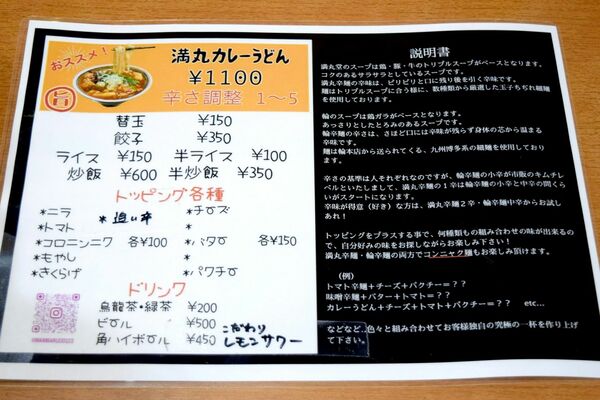 おススメ!
満丸カレーうどん
¥1100
辛さ調整 1~5
替玉 ¥150
餃子 ¥350
ライス ¥150 半ライス ¥100
炒飯 ¥600 半炒飯 ¥350
トッピング各種
*ニラ *追い辛 *チーズ
*トマト
*コロニンニク 各¥100 *バター 各¥150
*もやし
*きくらげ *パクチー
ドリンク
烏龍茶・緑茶 ¥200
ビール ¥500 こだわり
角ハイボール ¥450 レモンサワー
説明書
満丸堂のスープは鶏・豚・牛のトリプルスープがベースとなります。
コクのあるサラサラとしているスープです。
満丸辛麺の辛味は、ピリピリと口に残り後を引く辛味です。
麺はトリプルスープに合う様に、数種類から厳選した玉子ちぢれ細麺を使用しております。
輪のスープは鶏ガラがベースとなります。
あっさりとしたとろみのあるスープです。
輪辛麺の辛さは、さほど口には辛味が残らず身体の芯から温まる
辛味です。
麺は輪本店から送られてくる、九州博多系の細麺を使用しており
ます。
辛さの基準は人それぞれなのですが、輪辛麺の小辛が市販のキムチレ
ベルといたしまして、満丸辛麺の1辛は輪辛麺の小辛と中辛の間くら
いがスタートになります。
辛味が得意(好き)な方は、満丸辛麺2辛・輪辛麺中辛からお試し
あれ!
トッピングをプラスする事で、何種類もの組み合わせの味が出来るの
で、自分好みの味をお探しながらお楽しみ下さい!
満丸辛麺・輪辛麺の両方でコンニャク麺もお楽しみ頂けます。
(例)
トマト辛麺+チーズ+パクチー=??
味噌辛麺+バター+トマト=??
カレーうどん+チーズ+トマト+パクチー=?? etc...
などなど..色々と組み合わせてお客様独自の究極の一杯を作り上げ
て下さい。